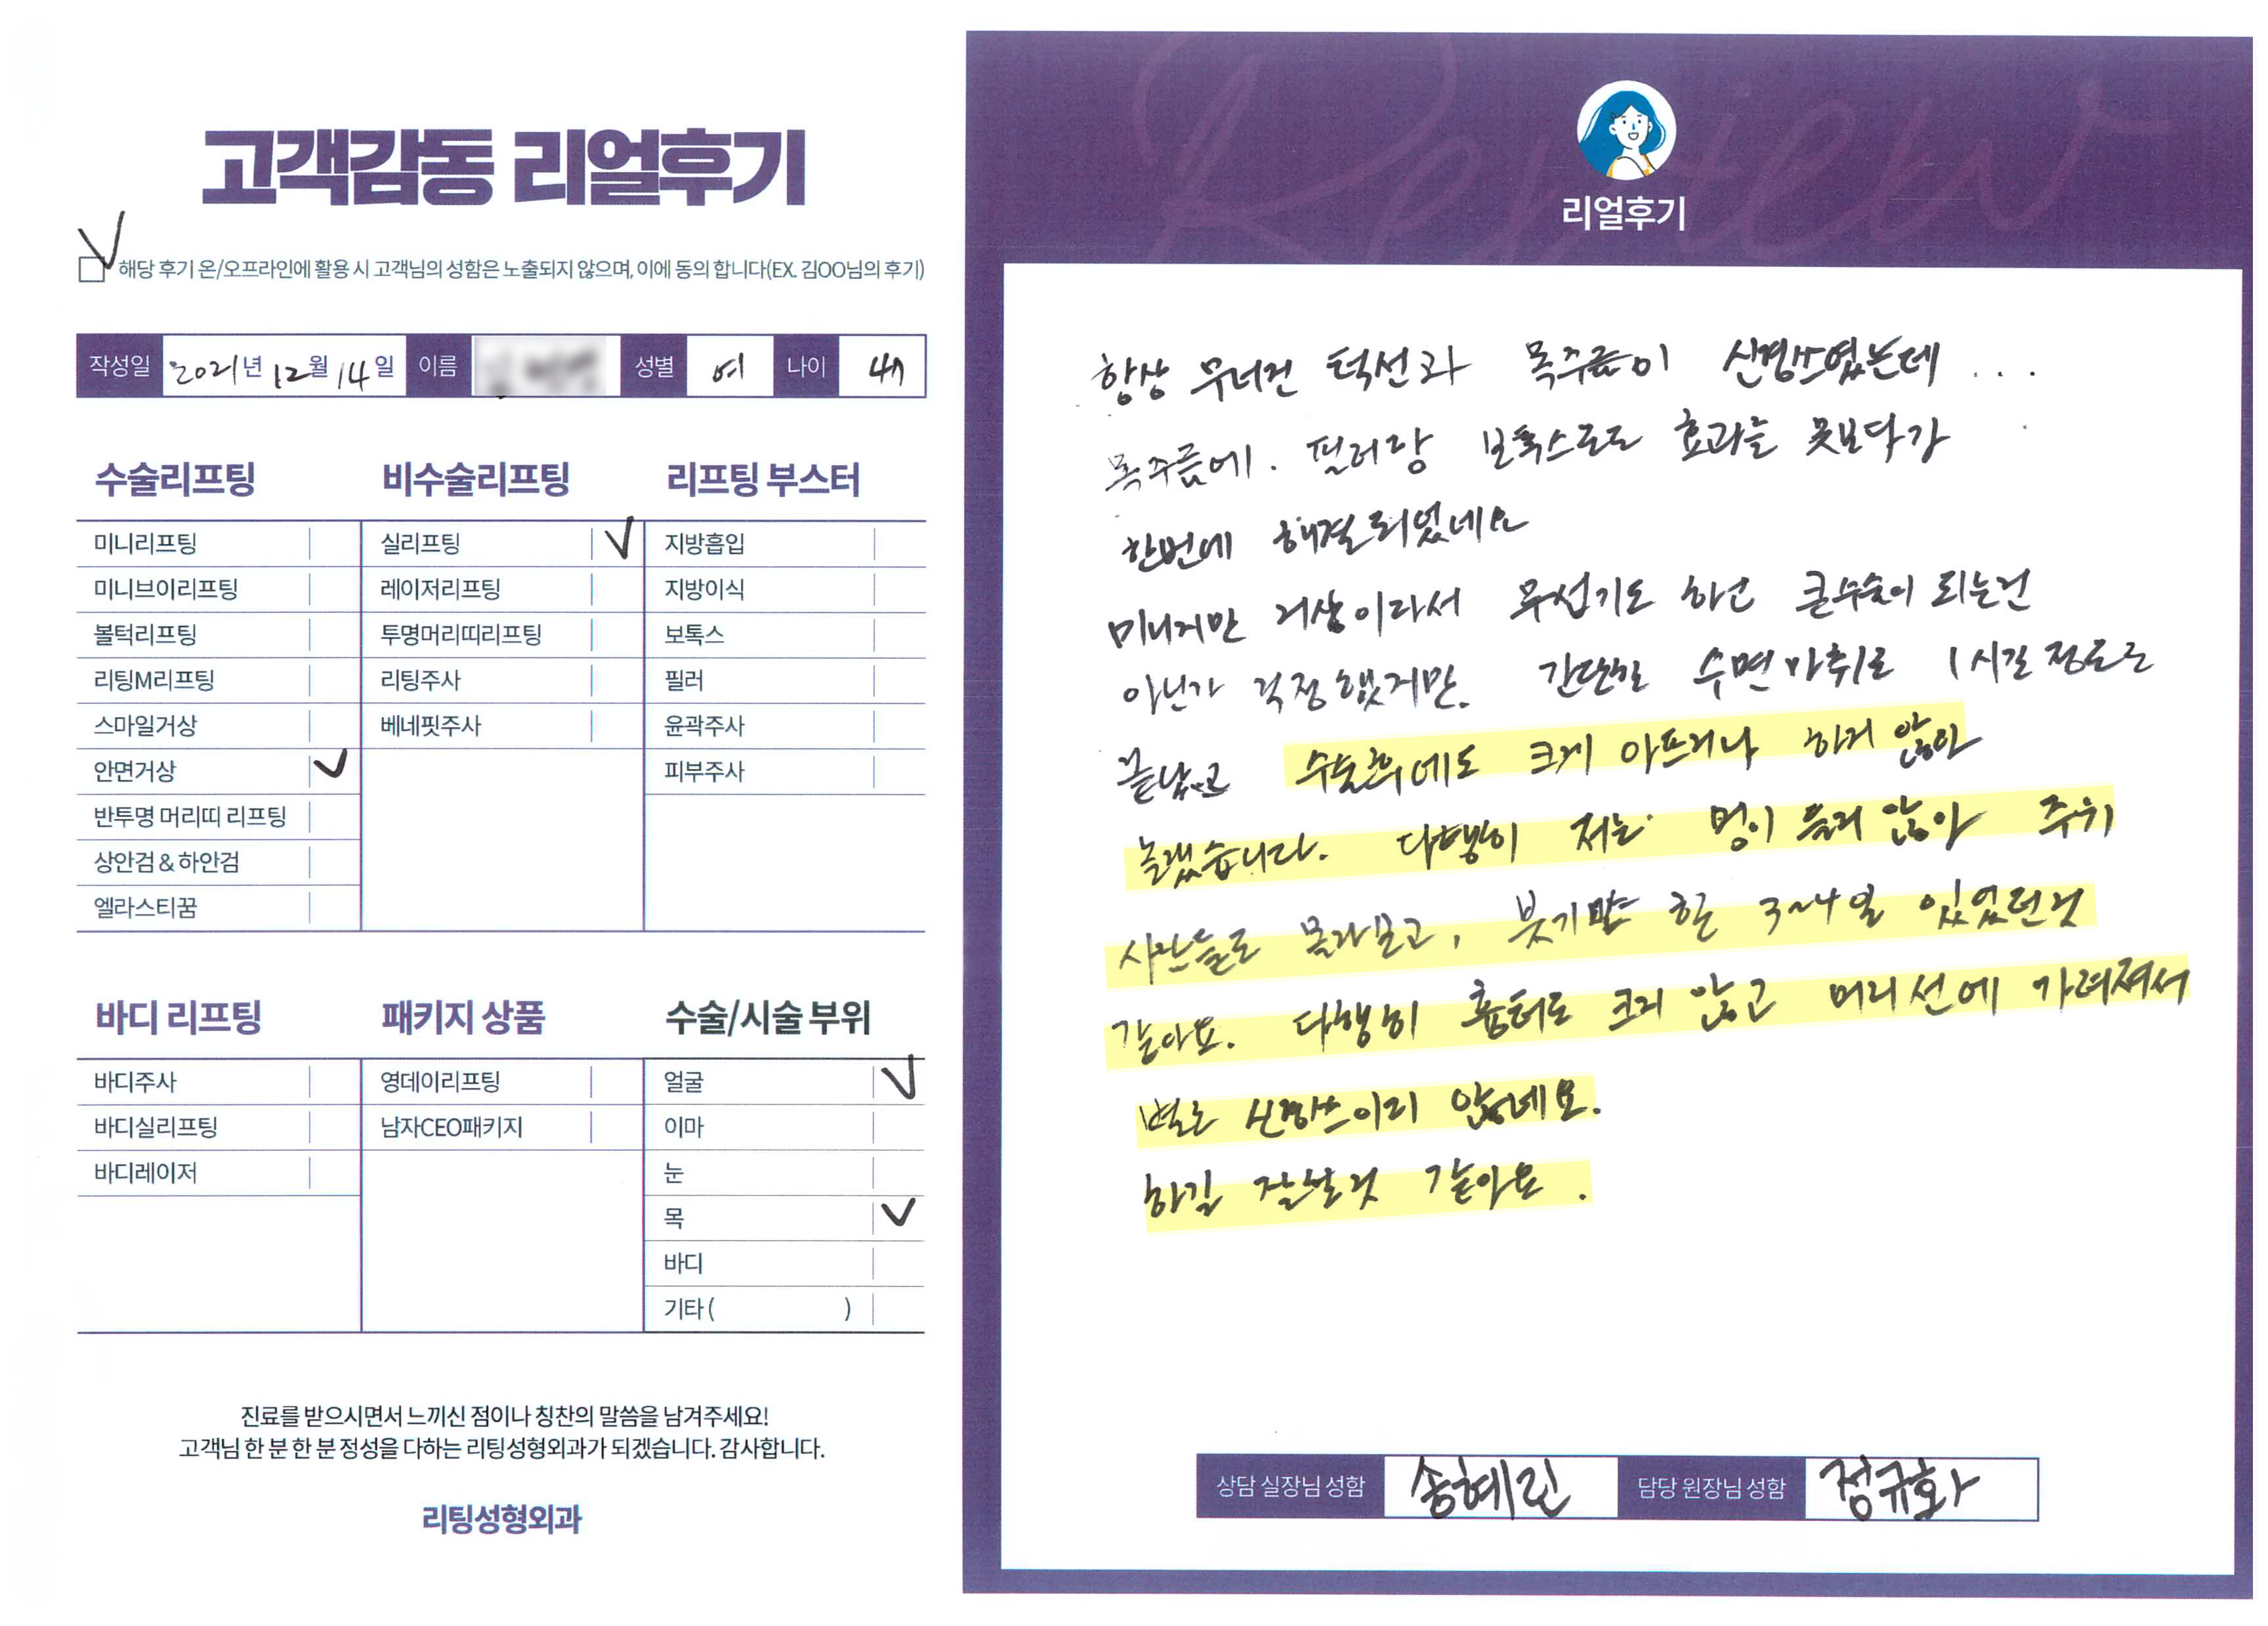 고객감동 리얼후기
해당 후기 온/오프라인에 활용 시 고객님의 성함은 노출되지 않으며, 이에 동의 합니다(EX. 김OO님의 후기)
작성일 2021년 12월 14일 이름 성별 여 나이 47
수술리프팅
미니리프팅
미니브이리프팅
볼턱리프팅
리팅M리프팅
스마일거상
안면거상
반투명 머리띠 리프팅
상안검 & 하안검
엘라스티꿈
비수술리프팅
실리프팅
레이저리프팅
투명머리띠리프팅
리팅주사
베네핏주사
리프팅 부스터
지방흡입
지방이식
보톡스
필러
윤곽주사
피부주사
바디 리프팅
바디주사
바디실리프팅
바디레이저
패키지 상품
영데이리프팅
남자CEO패키지
수술/시술 부위
얼굴
이마
눈
목
바디
기타 ( )
진료를 받으시면서 느끼신 점이나 칭찬의 말씀을 남겨주세요!
고객님 한 분 한 분 정성을 다하는 리팅성형외과가 되겠습니다. 감사합니다.
리팅성형외과
Review
리얼후기
항상 무너진 턱선과 목주름이 신경쓰였는데 ...
목주름에. 필러랑 보톡스로도 효과를 못보다가
한번에 해결되었네요
미니지만 거상이라서 무섭기도 하고 큰수술이 되는건
아닌가 걱정했지만. 간단히 수면마취로 1시간 정도로
끝났고 수술후에도 크게 아프거나 하지 않아
놀랬습니다. 다행히 저는 멍이 들지 않아 주위
사람들도 몰라보고, 붓기만 한 3~4일 있었던것
같아요. 다행히 흉터도 크지 않고 머리선에 가려져서
별로 신경쓰이지 않네요.
하길 잘한것 같아요.
상담 실장님 성함 송혜린 담당 원장님 성함 정규화